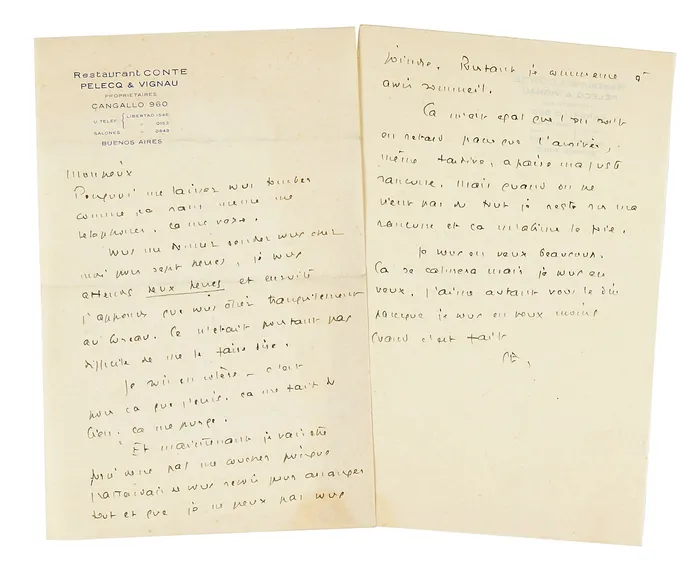 Restaurant CONTE
PELECQ & VIGNAU
PROPRIETAIRES
CANGALLO 960
U. TELEF. { LIBERTAD 1546
" 0153
SALONES " 0649
BUENOS AIRES
Monsieur
Pourquoi me laissez vous tomber
comme ça sans même me
telephoner. Ca me vexe.
Vous me donnez rendez vous chez
moi pour sept heures, je vous
attends deux heures et ensuite
j'apprends que vous étiez tranquillement
au bureau. Ce n'était pourtant pas
difficile de me le faire dire.
Je suis en colère - c'est
pour ça que j'écris. ça me fait du
bien. ça me purge.
Et maintenant je vais
pas me coucher puisque
j'attendais de vous revoir pour arranger
tout et que je ne peux pas vous
joindre. Pourtant je commence à
avoir sommeil.
Ca m'est egal que l'on soit
en retard parce que l'arrivée,
même tardive, apaise ma juste
rancune. Mais quand on ne
vient pas du tout je reste sur ma
rancune et ça me le foie.
Je vous en veux beaucoup.
Ca se calmera mais je vous en
veux. J'aime autant vous le dire
parceque je vous en veux moins
quand c'est fait